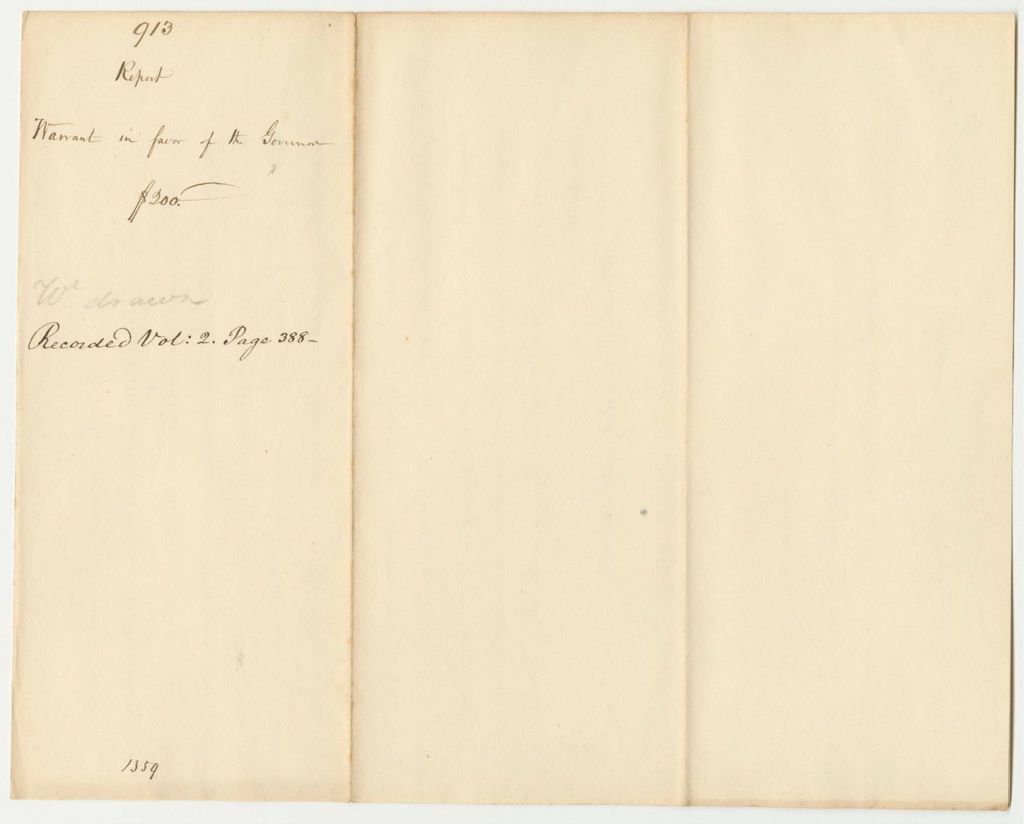 913
Report
Warrant in favor of the Governor
$200.
Wt drawn
Recorded Vol: 2. Page 388-
1359